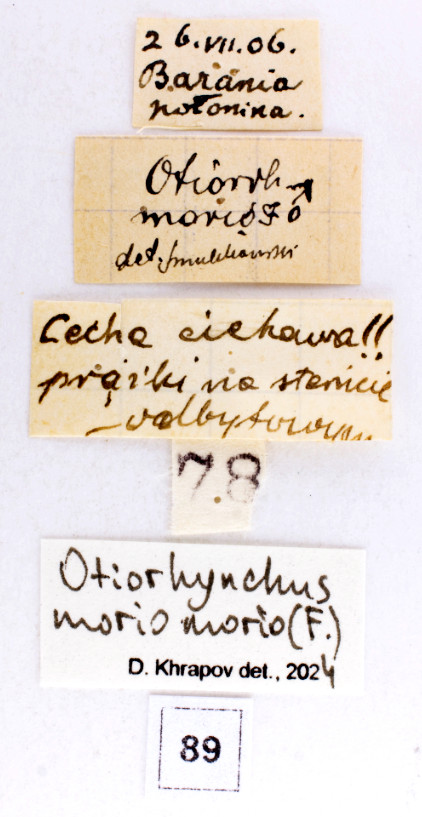 26.VII.06.
Barania
połonina.
Otiorrh.
morio F. ♂
det. Smulikowski
Cecha ciekawa!!
prążki na sternicie
odbytowym
78
Otiorhynchus
morio morio (F.)
D. Khrapov det., 2024
89